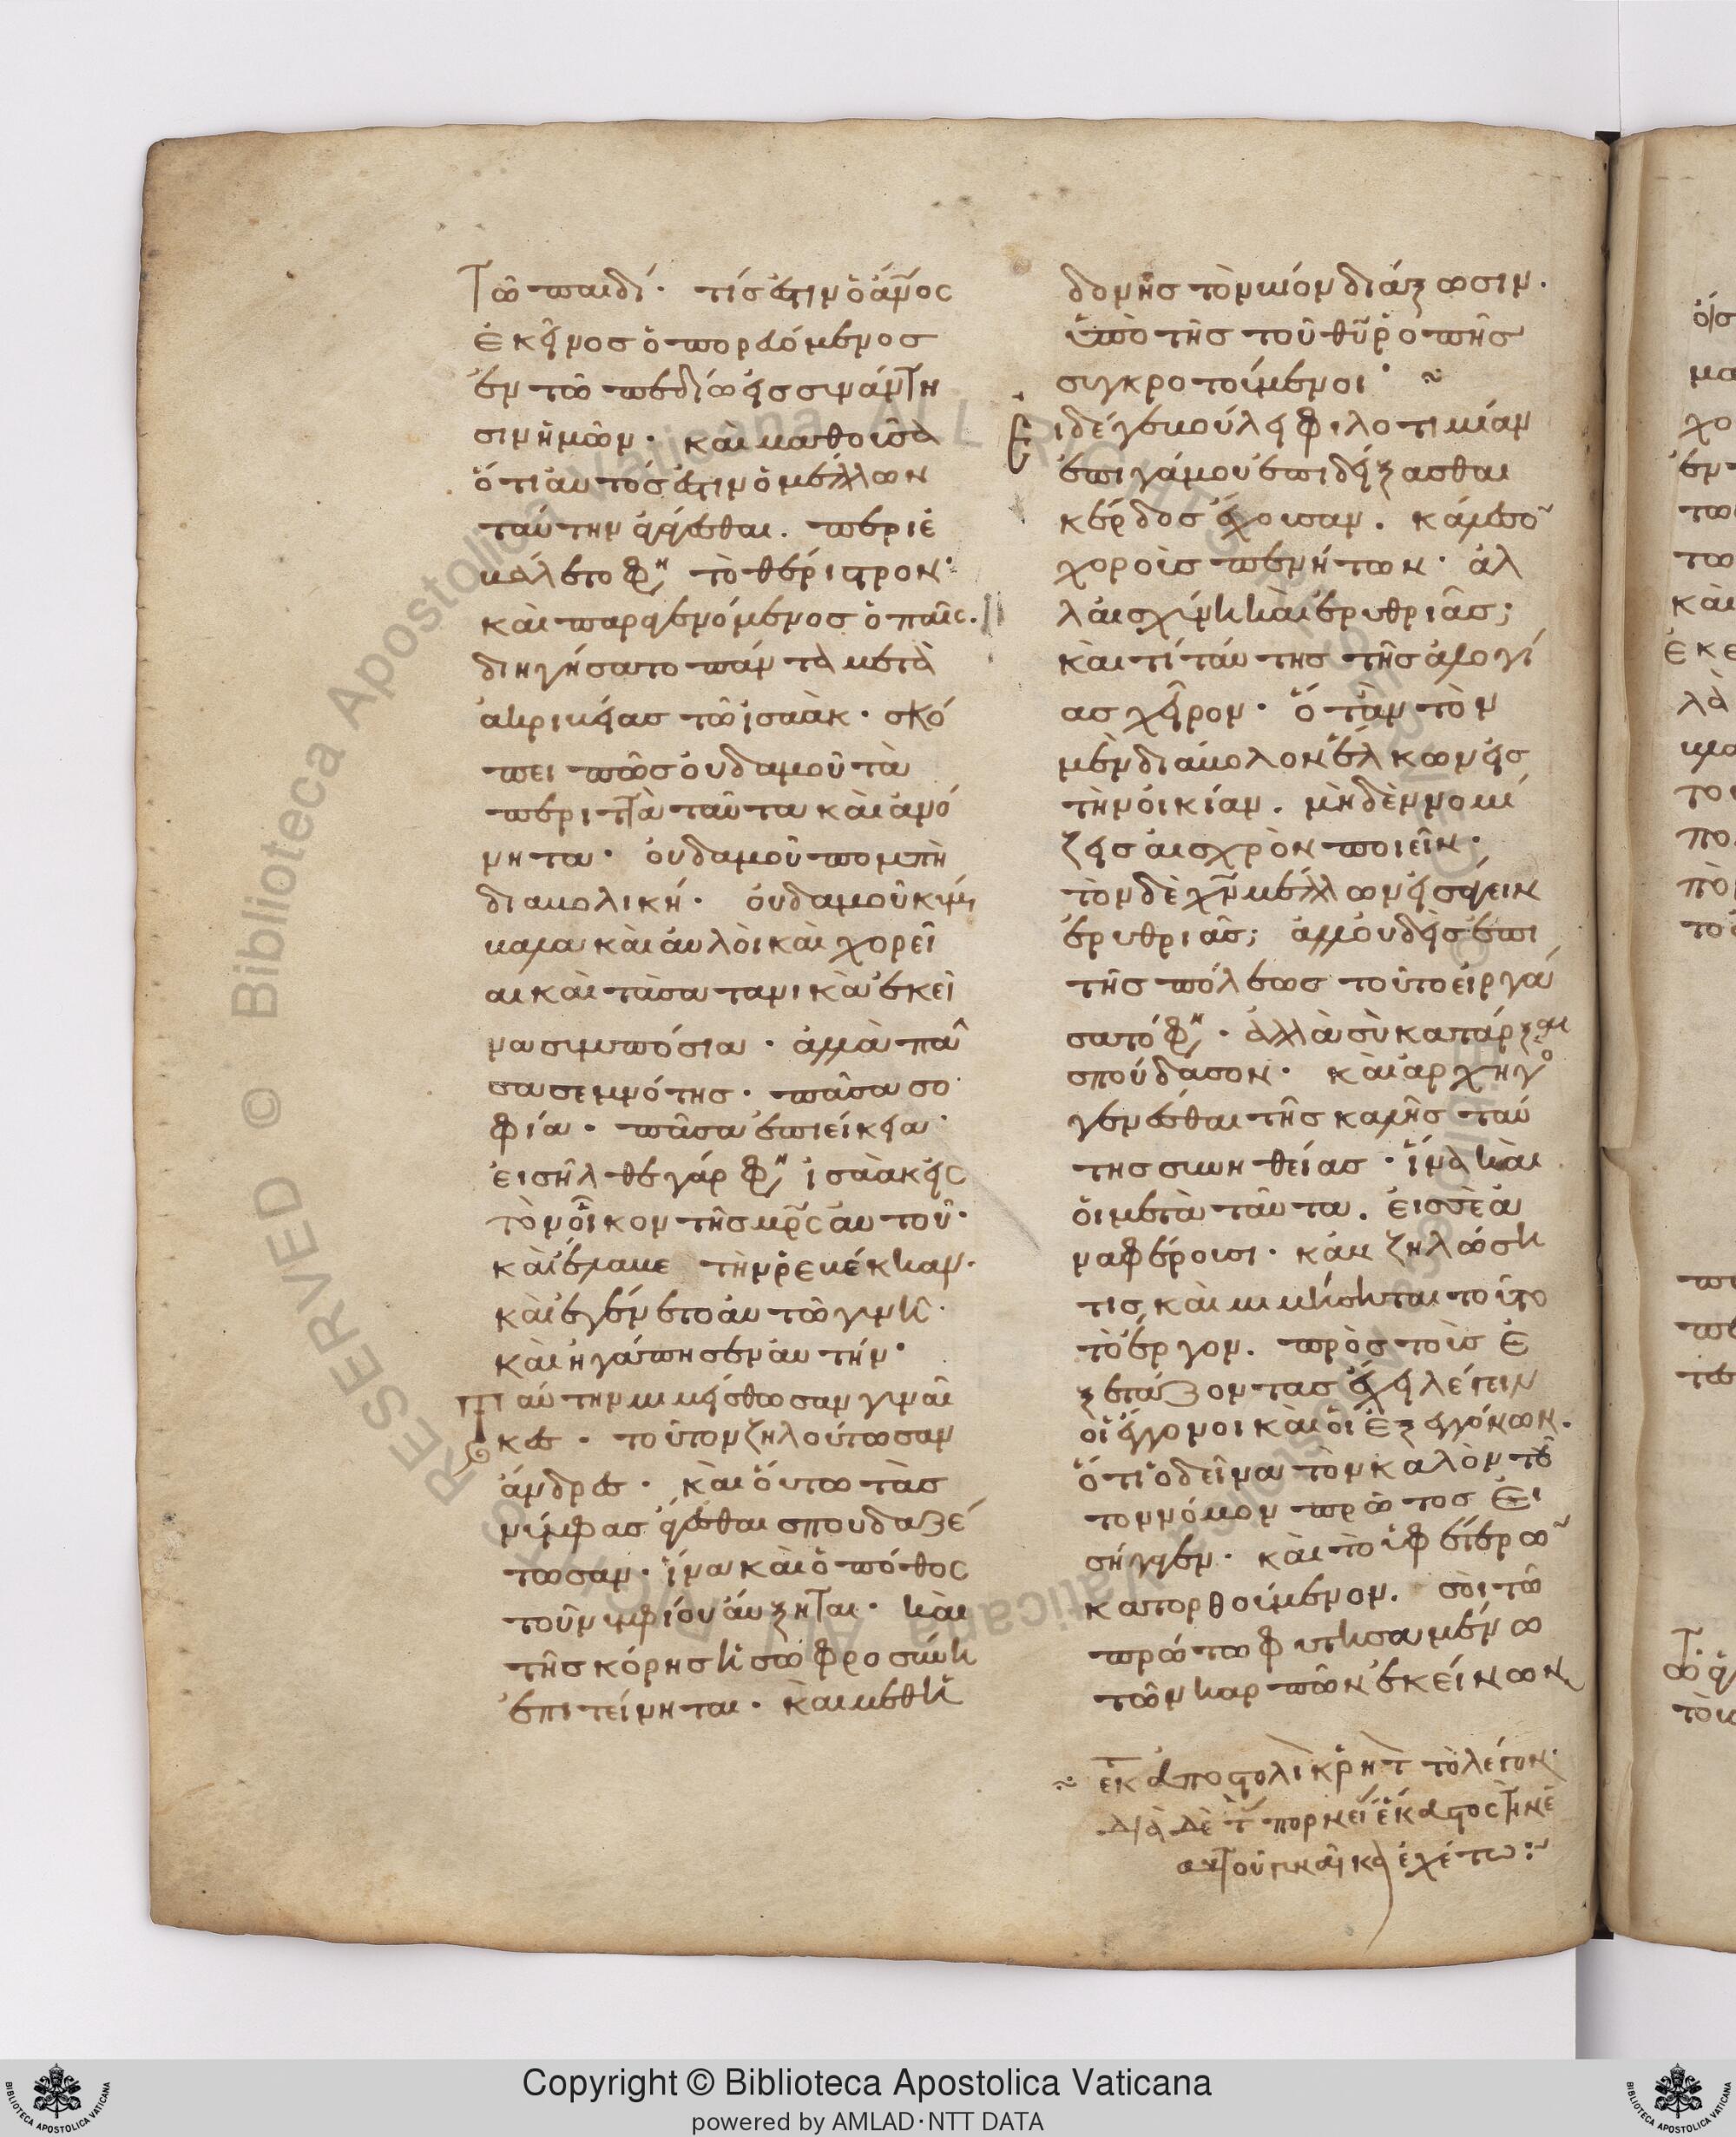 Τῶ παιδί· τίς ἐστιν ὁ ἀν̅ος
ἐκεῖνος ὁ πορευόμενος
ἐν τῶ πεδίω εἰς συνάντη
σιν ἡμῶν· καὶ μαθοῦσα
ὅτι αὐτός ἐστιν ὁ μέλλων
ταύτην ἄγεσθαι. περιε
βάλετο φη τὸ θέριστρον·
καὶ παραγενόμενος ὁ παῖς.
διηγήσατο πάντα μετὰ
ἀκριβείας τῶ ἰσαάκ· σκό
πει πῶς οὐδαμοῦ τὰ
περιττὰ ταῦτα καὶ ἀνό
νητα· οὐδαμοῦ πομπὴ
διαβολική· οὐδαμοῦ κύμ
βαλα καὶ αὐλοὶ καὶ χορεῖ
αι καὶ τὰ σατανικὰ ἐκεῖ
να συμπόσια· ἀλλὰ πᾶ
σα σεμνότης· πᾶσα σο
φία· πᾶσα ἐπιείκεια·
εἰσῆλθε γάρ φη ἰσαὰκ εἰς
τὸν οἶκον τῆς μρ̅ς αὐτοῦ·
καὶ ἔλαβε τὴν ῥεβέκκαν·
καὶ ἐγένετο αὐτῶ γυνή·
καὶ ἠγάπησεν αὐτήν·
Ταύτην μιμείσθωσαν γυναῖ
κες· τοῦτον ζηλούτωσαν
ἄνδρες· καὶ οὕτω τὰς
νύμφας ἄγεσθαι σπουδαζέ
τωσαν· ἵνα καὶ ὁ πόθος
τοῦ νυμφίου αὔξηται· καὶ
τῆς κόρης ἡ σωφροσύνη
ἐπιτείνηται· καὶ μεθ' ἡ
δονῆς τὸν βίον διάξωσιν·
ὑπὸ τῆς τοῦ θῦ ῥοπῆς
συγκροτούμενοι·
Εἰ δέ γε βούλει φιλοτιμίαν
ἐπι γάμου ἐπιδείξασθαι
κέρδος ἔχουσαν. κάλεσον
χοροὺς πενήτων· ἀλ
λ' αἰσχύνη καὶ ἐρυθριᾶς;
καὶ τί ταύτης τῆς ἀλογί
ας χεῖρον· ὅταν τὸν
μὲν διάβολον ἕλκων εἰς
τὴν οἰκίαν. μηδὲν νομί
ζεις αἰσχρὸν ποιεῖν·
τὸν δὲ χν̅ μέλλων εἰσάγειν
ἐρυθριᾶς; ἀλλ' οὐδεὶς ἐπι
τῆς πόλεως τοῦτο εἰργά
σατό φη· ἀλλὰ σὺ κατάρξαι
σπούδασον· καὶ ἀρχηγὸ
γενέσθαι τῆς καλῆς ταύ
της συνηθείας· ἵνα καὶ
οἱ μετὰ ταῦτα. εἰς σὲ ἀ
ναφέρουσι· κἂν ζηλώση
τις, καὶ μιμήσηται τοῦτο
τὸ ἔργον. πρὸς τοὺς ἐ
ξετάζοντας ἔχει λέγειν
οἱ ἔγγονοι καὶ οἱ ἐξ ἐγγόνων.
ὅτι ὁ δεῖνα τὸν καλὸν τοῦ
τον νόμον πρῶτος εἰ
σήγαγεν· καὶ τὸ ὑφ' ἑτέρων
κατορθούμενον. σοὶ τῶ
πρώτω φυτήσαι μένω
τῶν καρπῶν ἐκείνων
ἐκ ἀποστολικ ῥητ τὸ λέγον·
Διὰ Δὲ τ πορνεί ἕκαστος τὴν ἑ
αυτοῦ γυναῖκα ἐχέτω:~
Copyright © Biblioteca Apostolica Vaticana
powered by AMLAD·NTT DATA